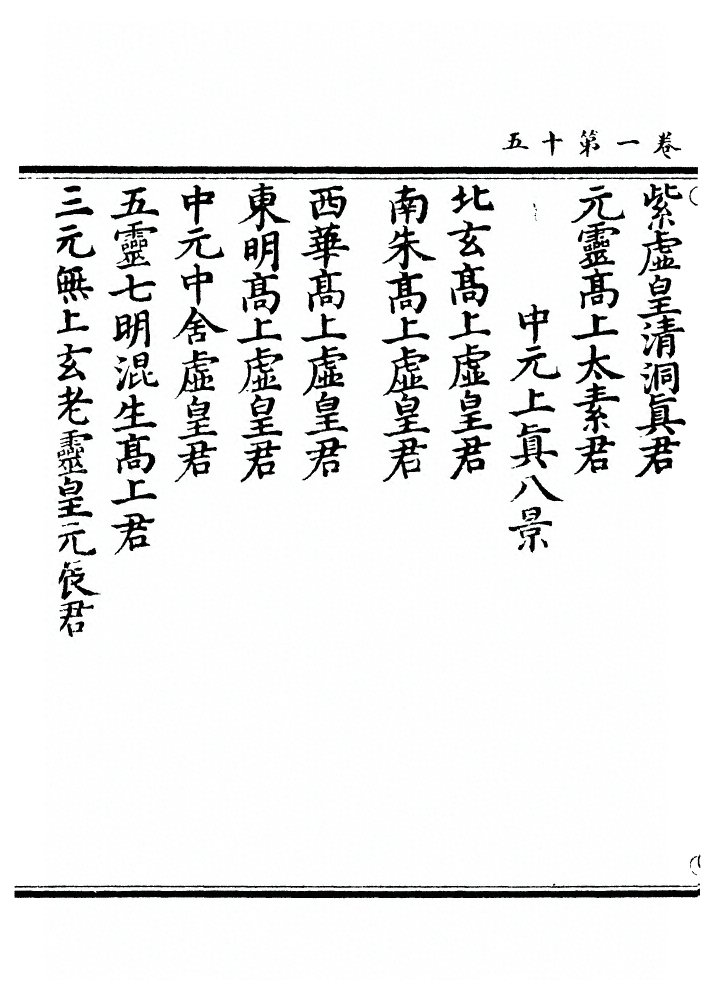 卷一第十五
紫虛皇清洞眞君
元靈高上太素君
中元上眞八景
北玄髙上虛皇君
南朱髙上虛皇君
西華髙上虛皇君
東明髙上虛皇君
中元中舍虛皇君
五靈七明混生髙上君
三元無上玄老靈皇元辰君